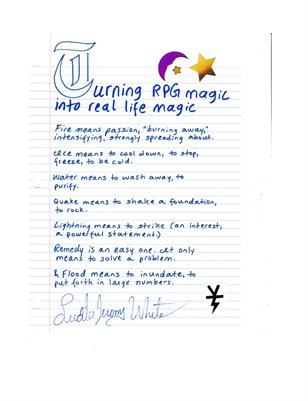 Turning RPG magic
into real life magic
Fire means passion, "burning away,"
intensifying, strongly spreading about.
Ice means to cool down, to stop,
freeze, to be cold.
Water means to wash away, to
purify.
Quake means to shake a foundation,
to rock.
Lightning means to strike (an interest,
a powerful statement)
Remedy is an easy one. It only
means to solve a problem.
& Flood means to inundate, to
put forth in large numbers.
Jeremy White